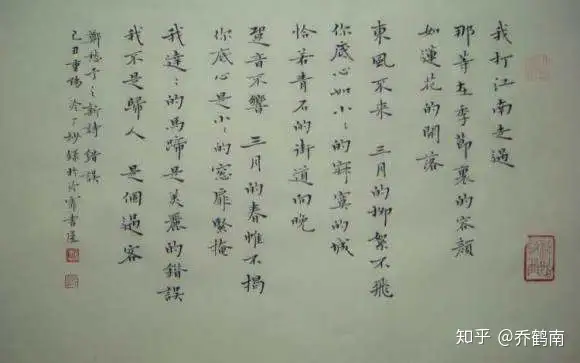 我打江南走過
那等在季節裏的容顏
如蓮花的開落
東風不來 三月的柳絮不飛
你底心如小〻的寂寞的城
恰若青石的街道向晚
跫音不響 三月的春帷不揭
你底心是小〻的窗扉緊掩
我達〻的馬蹄是美麗的錯誤
我不是歸人 是個過客
鄭愁予之新詩 錯誤
己丑重陽
知乎 @乔鹤南